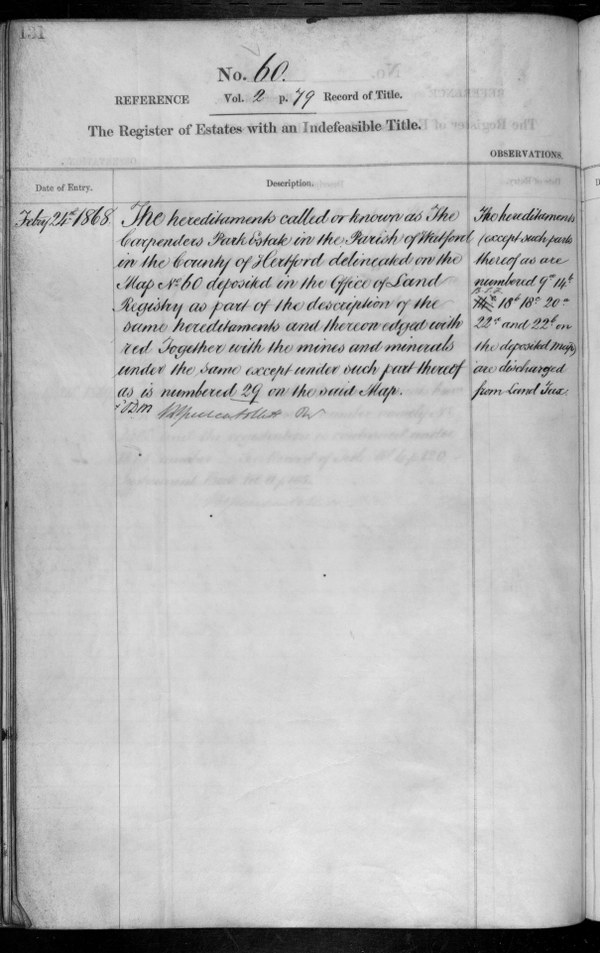 131
No. 60.
REFERENCE Vol. 2 p. 79 Record of Title.
The Register of Estates with an Indefeasible Title.
OBSERVATIONS.
Date of Entry.
Description.
Feby 24th 1868
The hereditaments called or known as The
Carpenders Park Estate in the Parish of Watford
in the County of Hertford delineated on the
Map No. 60 deposited in the Office of Land
Registry as part of the description of the
same hereditaments and thereon edged with
red Together with the mines and minerals
under the same except under such part thereof
as is numbered 29 on the said Map.
The hereditaments
(except such parts
thereof as are
numbered 9a 14b
18b 18c 20a
22a and 22b on
the deposited Map)
are discharged
from Land Tax.